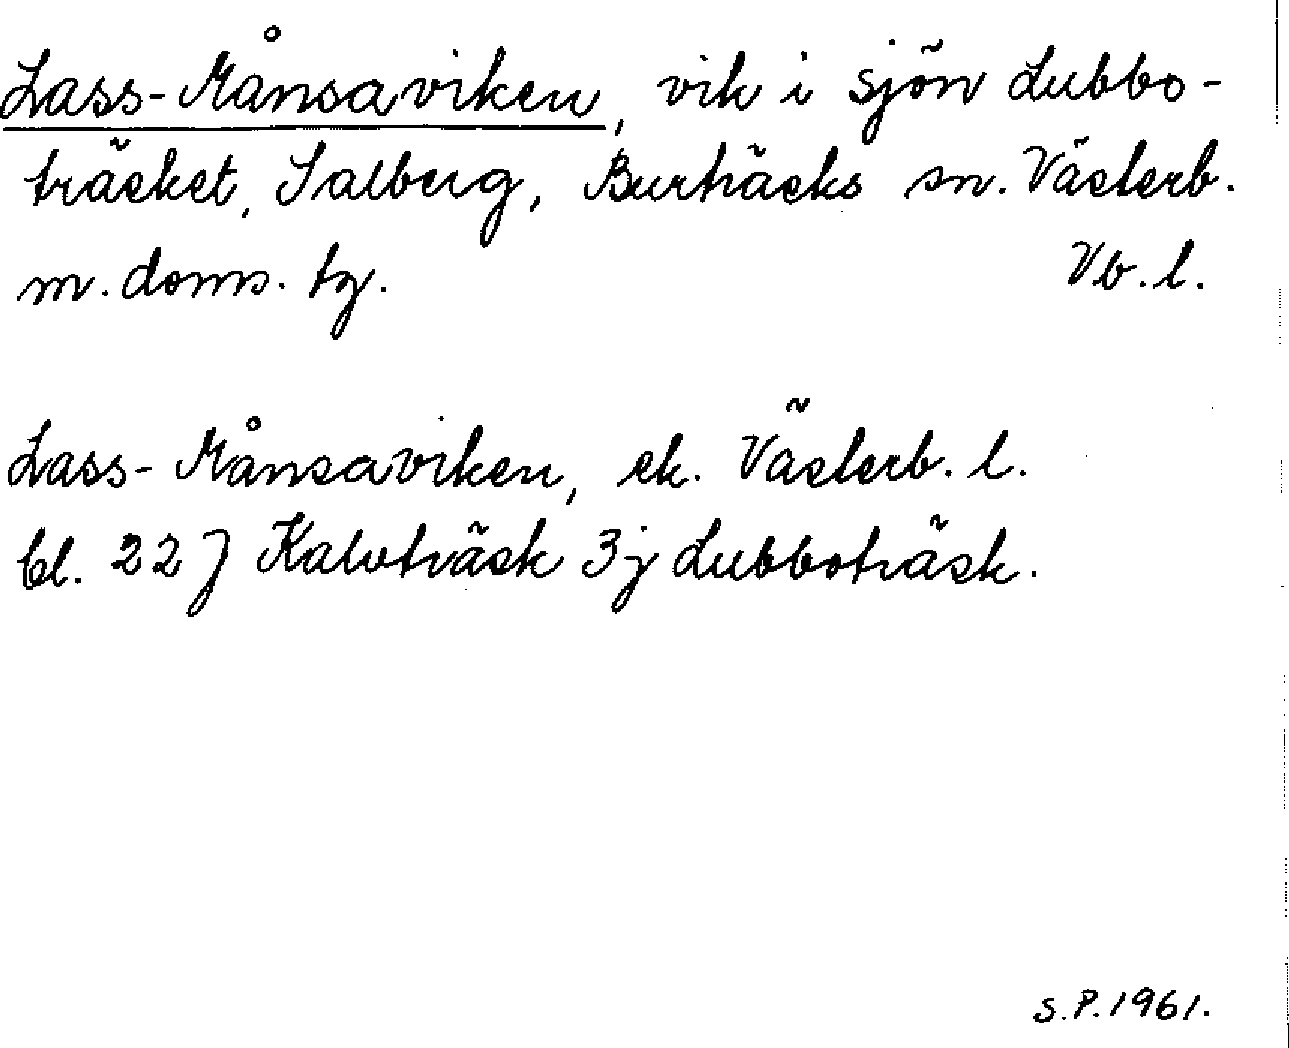 Lass-Månsaviken, vik i sjön Lubbo-
träsket, Salberg, Burträsks sn. Västerb.
m. doms. tg. Vb. l.
Lass-Månsaviken, ek. Västerb. l.
bl. 22 J Kalvträsk 3j Lubboträsk.
S.P. 1961.